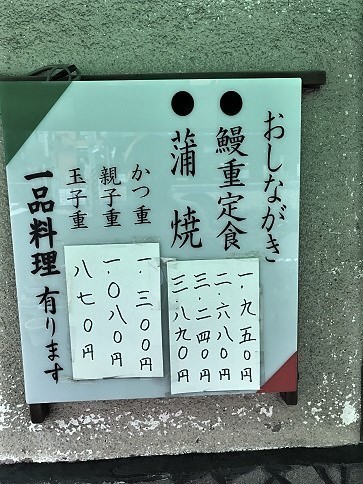 おしながき
●鰻重定食
●蒲焼
一・九五〇円
二・六八〇円
三・二四〇円
三・八九〇円
かつ重
親子重
玉子重
一・三〇〇円
一・〇八〇円
八七〇円
一品料理有ります